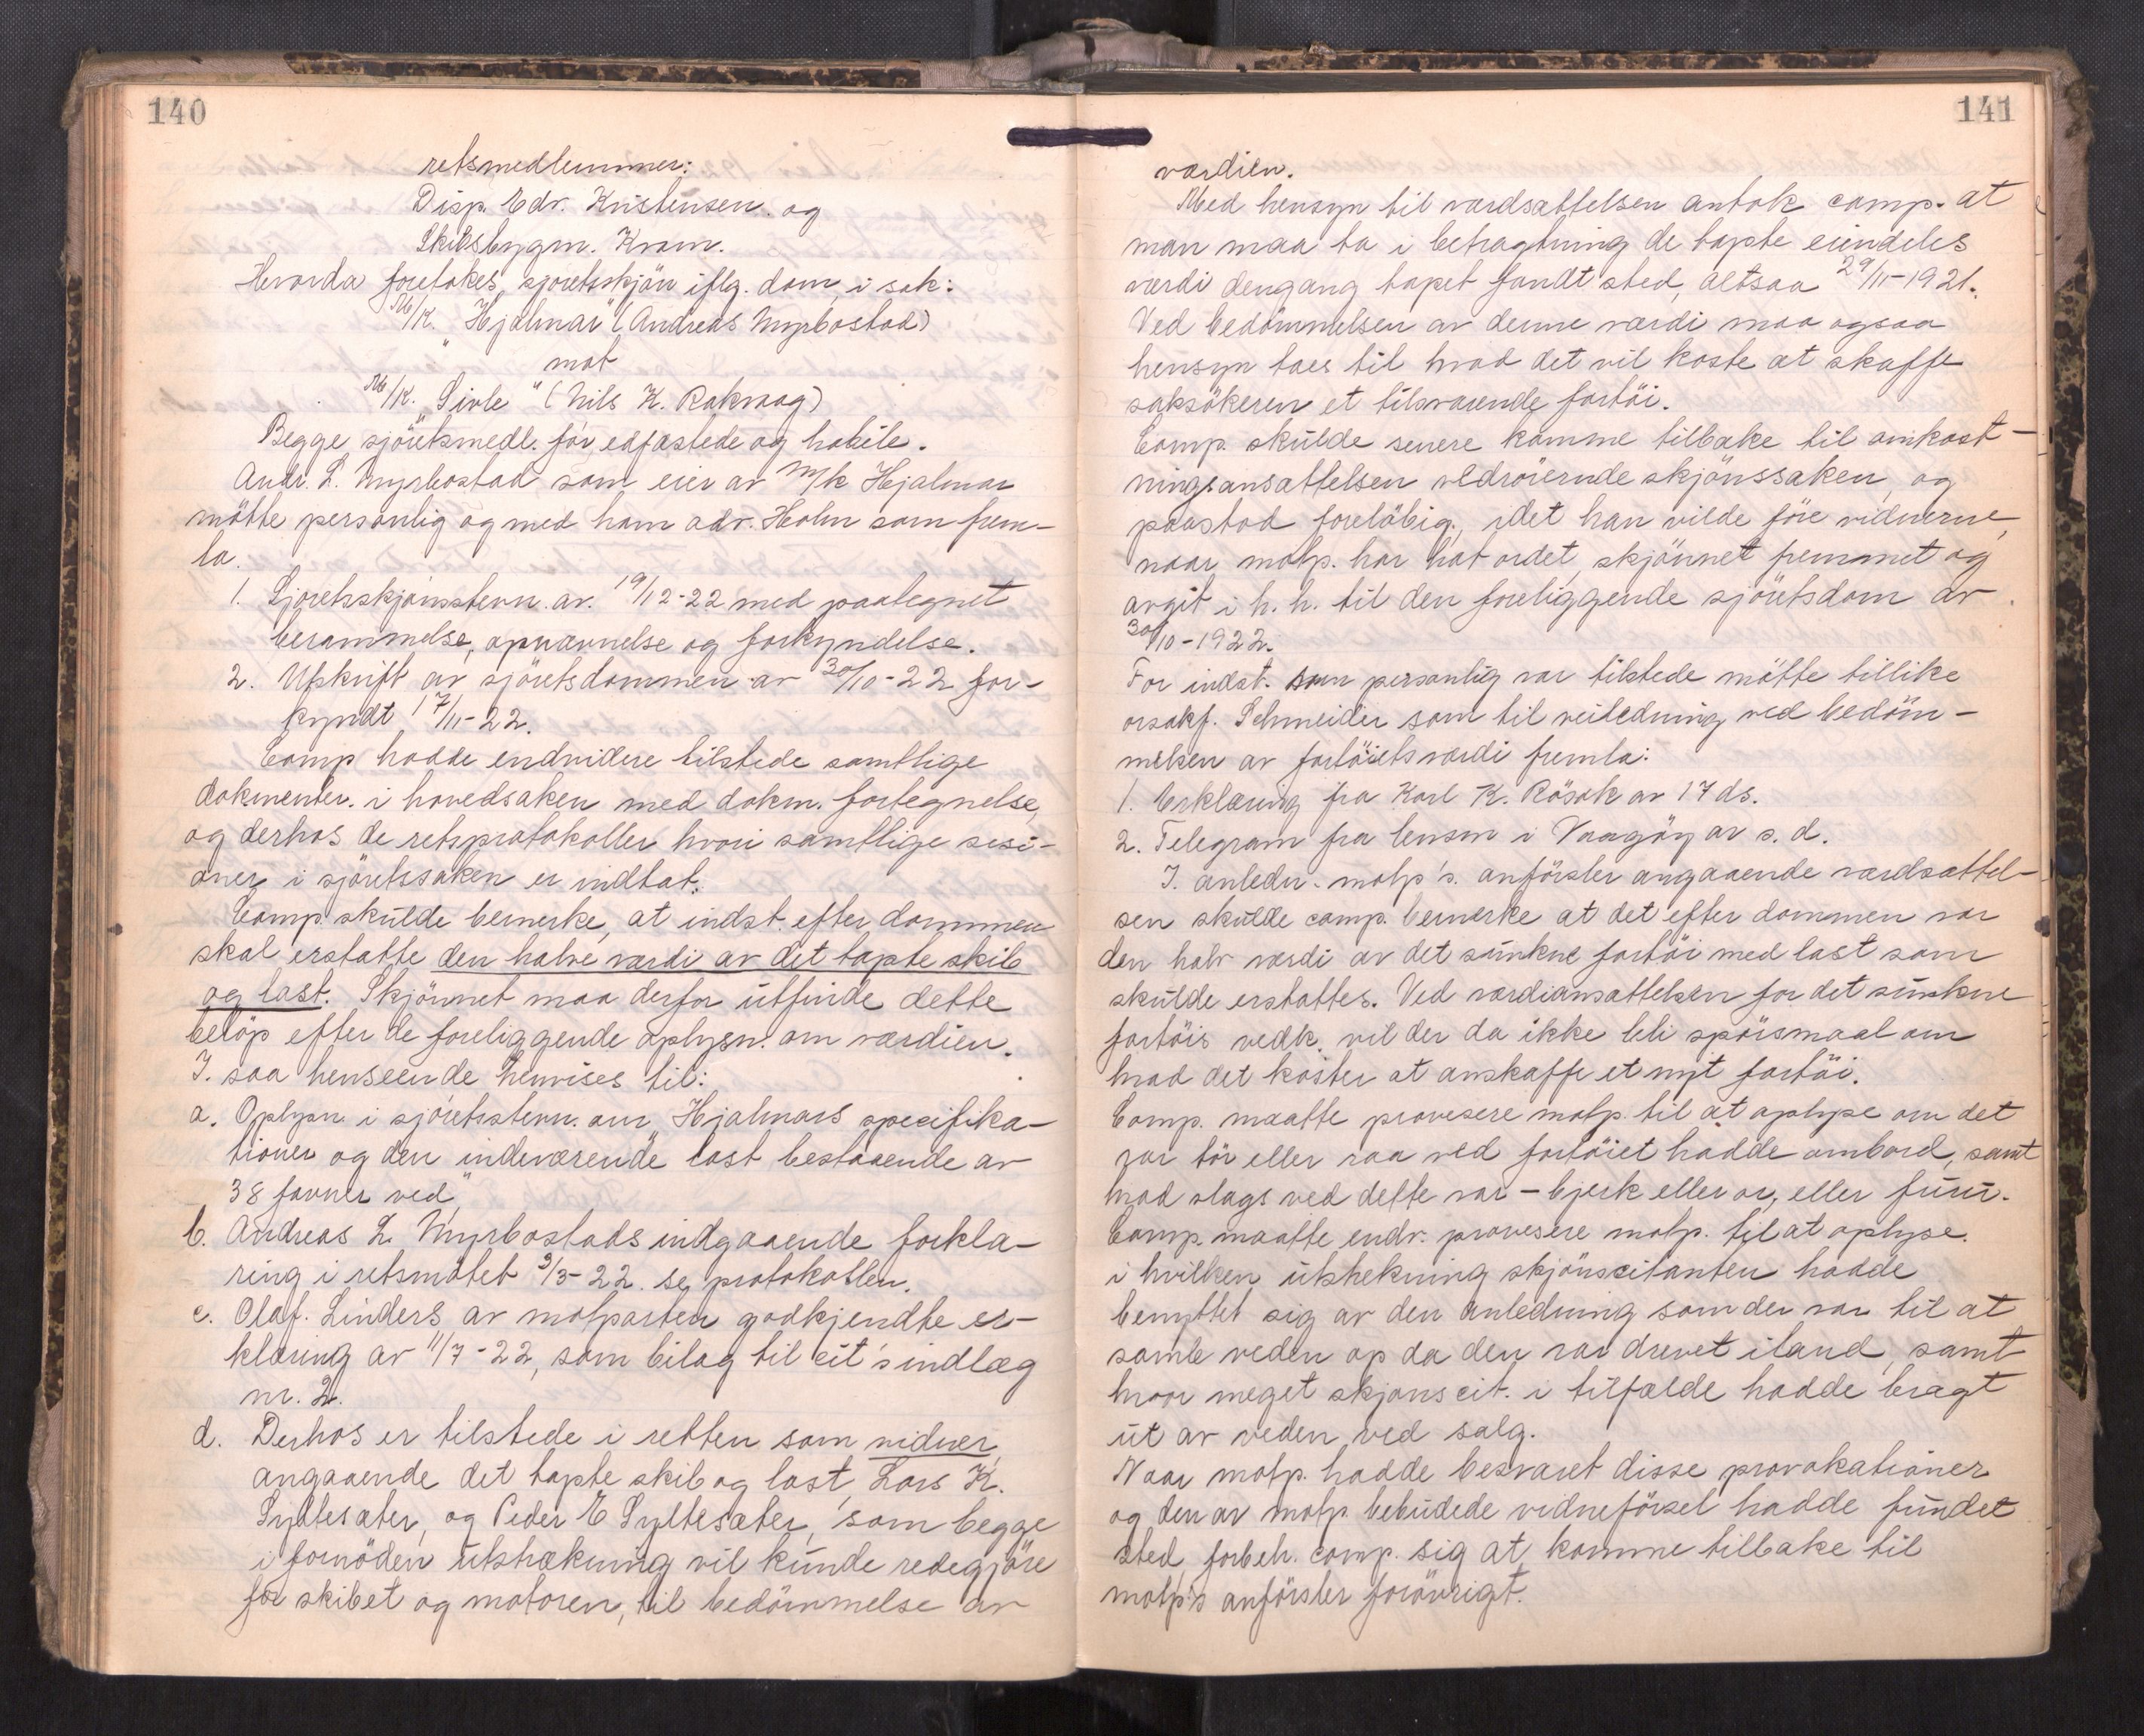 140
retsmedlemmer:
Disp. Edv. Kristensen. og
Skibsbygm. Kram.
Hvorda foretokes, sjøretsskjön iflg. dom, i sak:
M/K. "Hjalmar" (Andreas Myrbostad)
mot
M/K. "Sivle" (Nils K. Rakvaag)
Begge sjöretsmedl. før edfæstede og habile.
Andr. L. Myrbostad som eier av M/k Hjalmar
mötte personlig og med ham adv. Holm som frem-
la.
1. Sjøretsskjönsstevn. av. 19/12-22 med paategnet
berammelse, opnævnelse og forkyndelse.
2. Utskrift av sjöretsdommen av 30/10-22 for-
kyndt 17/11-22.
Comp hadde endvidere tilstede samtlige
dokmenter. i hovedsaken med dokm. fortegnelse,
og derhos de retsprotokoller hvori samtlige sesi-
oner i sjöretssaken er indtat.
Comp. skulde bemerke, at indst. efter dommen
skal erstatte den halve værdi av det tapte skib
og last. Skjönnet maa derfor utfinde dette
belöp efter de foreliggende oplysn. om værdien.
I. saa henseende henvises til:
a. Oplysn. i sjöretsstevn. om "Hjalmars specifika-
tioner og den indeværende last bestaaende av
38 favner ved"
b. Andreas L. Myrbostads indgaaende forkla-
ring i retsmötet 2/3-22. se protokollen.
c. Olaf. Linders av motparten godkjendte er-
klæring av 11/7-22, som bilag til cit's indlæg
nr. 2.
d. Derhos er tilstede i retten som vidner,
angaaende det tapte skib og last, Lars K.
Syltesæter, og Peder E Syltesæter, som begge
i fornöden utstrækning vil kunde redegjöre
for skibet og motoren, til bedömmelse av
141
værdien.
Med hensyn til værdsættelsen antok comp. at
man maa ta i betragtning de tapte eiendeles
værdi dengang tapet fandt sted, altsaa 29/11-1921.
Ved bedömmelsen av denne værdi maa ogsaa
hensyn taes til hvad det vil koste at skaffe
saksökeren et tilsvarende fartöi.
Comp. skulde senere komme tilbake til omkost-
ningsansættelsen vedröiernde skjönssaken, og
paastod foreløbig, idet han vilde före vidnerne,
naar motp. har hat ordet, skjönnet fremmet og
avgit i h. h. til den foreliggende sjöretsdom av
30/10-1922.
For indst. som personlig var tilstede mötte tillike
orsakf. Schneider som til veiledning ved bedöm-
melsen av fartöiets værdi fremla:
1. Erklæring fra Karl K. Rösok av 17 ds.
2. Telegram fra lensm i Vaagöy av s. d.
I. anledn. motp's. anförsler angaaende værdsættel-
sen skulde comp. bemerke at det efter dommen var
den halv værdi av det sunkne fartöi med last som
skulde erstattes. Ved værdiansættelsen for det sunkne
fartöis vedk. vil der da ikke bli spörsmaal om
hvad det koster at anskaffe et nyt fartöi.
Comp. maatte provesere motp. til at oplyse om det
var tör eller raa ved fartöiet hadde ombord, samt
hvad slags ved dette var - bjerk eller or, eller furu.
Comp. maatte endv. provesere motp. til at oplyse.
i hvilken utstrekning skjönscitanten hadde
benyttet sig av den anledning som der var til at
samle veden op da den var drevet iland, samt
hvor meget skjønscit. i tilfælde hadde bragt
ut av veden ved salg.
Naar motp. hadde besvaret disse provokationer
og den av motp. bebudede vidneförsel hadde fundet
sted, forbeh. comp. sig at komme tilbake til
motp's anförsler forövrigt.